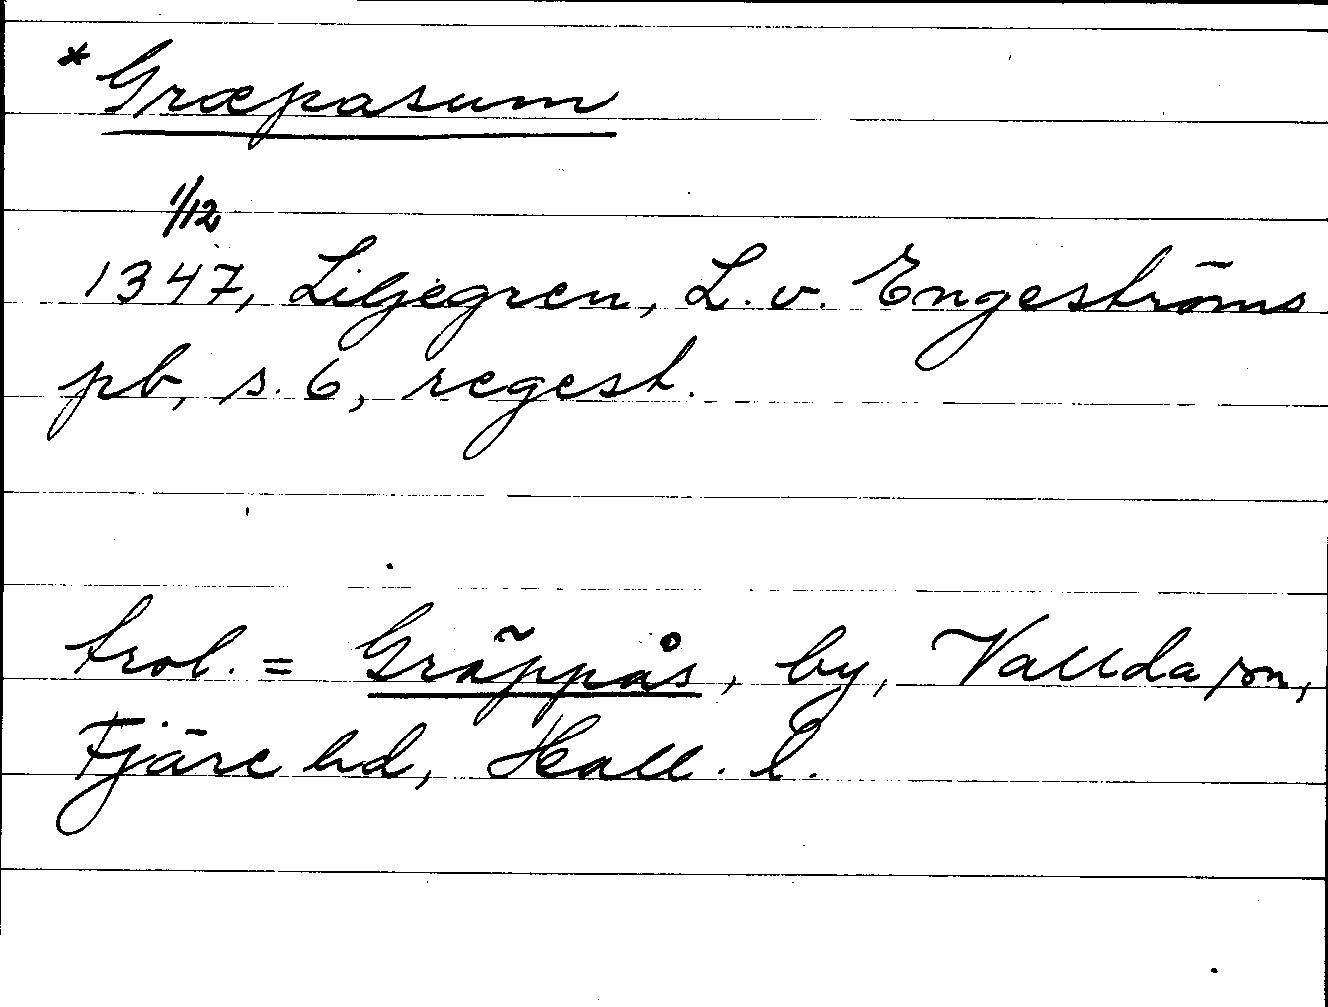 *Græpasum
1/12
1347, Liljegren, L. v. Engeströms
pb, s. 6, regest.
trol. = Gräppås, by, Vallda sn,
Fjäre hd, Hall. l.